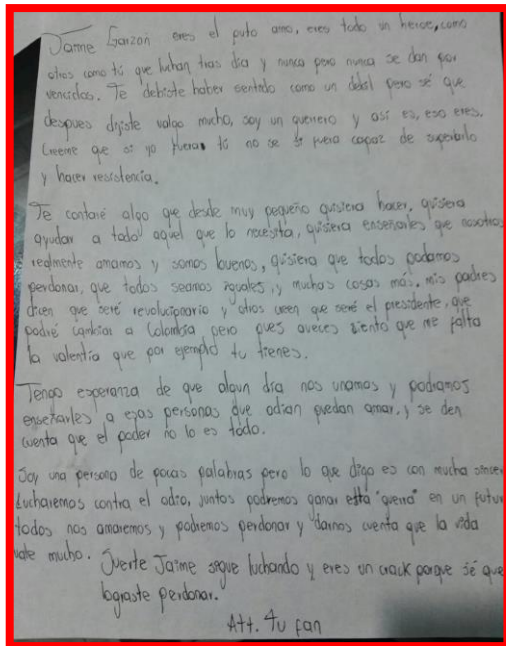 Jaime Garzón eres el puto amo, eres todo un heroe, como
otros como tú que luhan tras día y nunca pero nunca se dan por
vencidos. Te debiste haber sentido como un debil pero sé que
despues dijiste valgo mucho, soy un guerrero y así es, eso eres.
Creeme que si yo fuera tú no se si fuera capaz de superarlo
y hacer resistencia.
Te contaré algo que desde muy pequeño quisiera hacer, quisiera
ayudar a todo aquel que lo necesita, quisiera enseñarles que nosotros
realmente amamos y somos buenos, quisiera que todos podamos
perdonar, que todos seamos iguales, y muchas cosas más, mis padres
dicen que seré revolucionario y otros creen que seré el presidente, que
podré cambiar a Colombia pero pues aveces siento que me falta
la valentía que por ejemplo tu tienes.
Tengo esperanza de que algun día nos unamos y podramos
enseñarles a esas personas que odian puedan amar, y se den
cuenta que el poder no lo es todo.
Soy una persona de pocas palabras pero lo que digo es con mucha sincer
Lucharemos contra el odio, juntos podremos ganar esta "guerra" en un futur
todos nos amaremos y podremos perdonar y darnos cuenta que la vida
vale mucho. Suerte Jaime sigue luchando y eres un crack porque sé que
lograste perdonar.
Att. Tu fan